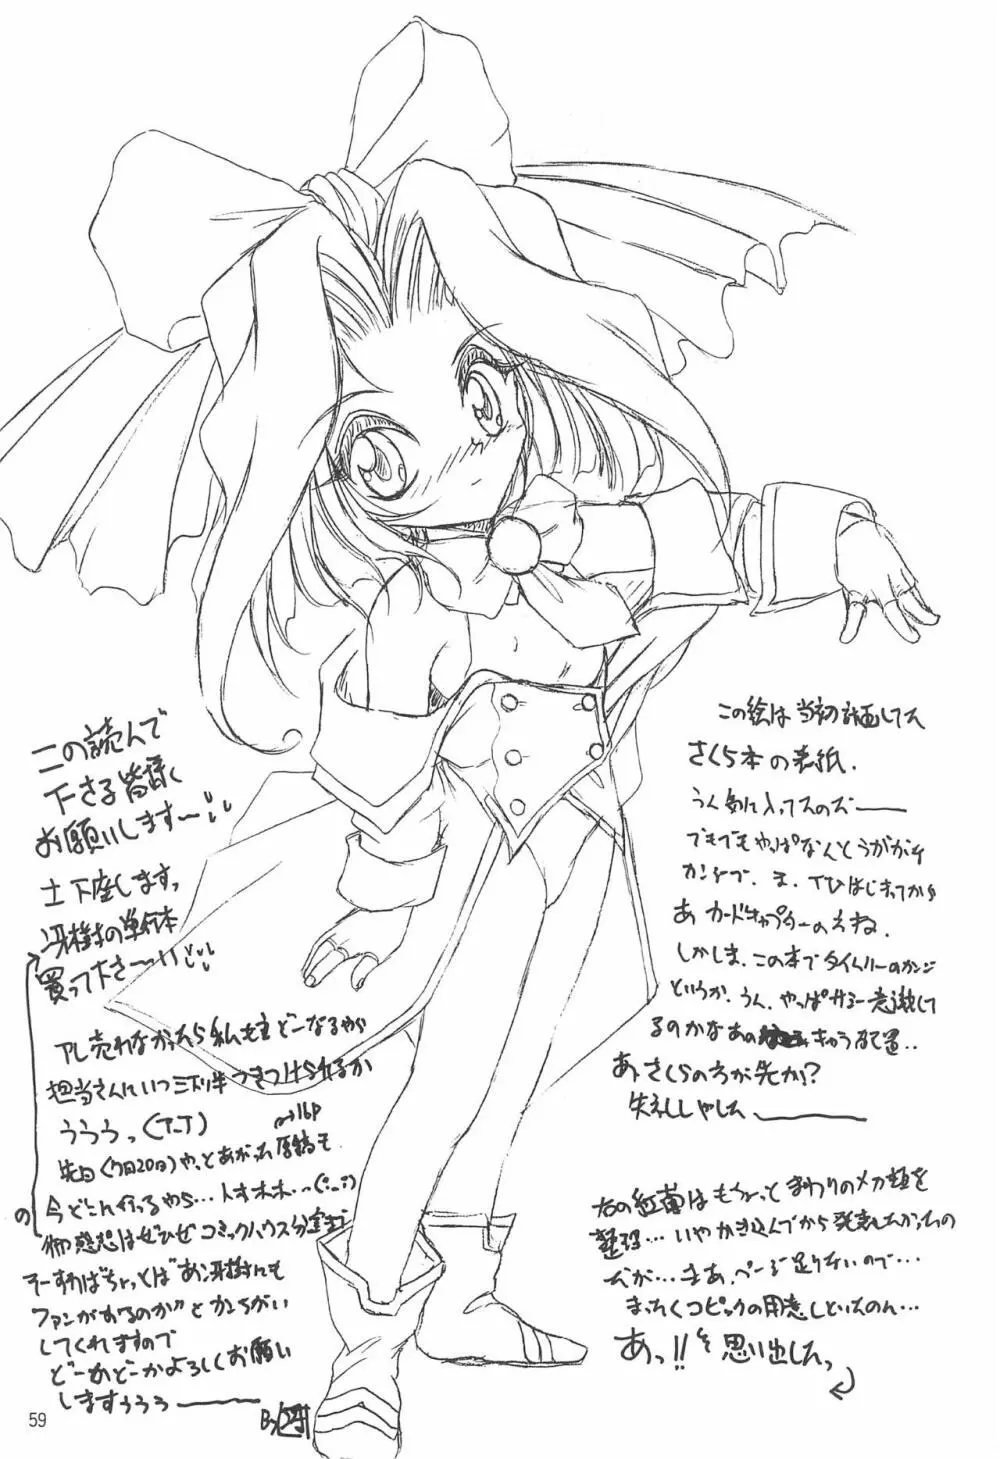 この絵は当初計画してた
さくら本の表紙.
うく気に入ってたのだ――
でもでもやっぱなんとうがガキ
カンジで. ま. てひはじまってから
あ カードキャプターのそね.
しかしま. この本でタイムリーのカンジ
というか. うん. やっぱサミー意識して
るのかなあの きゅう配置..
あ, さくらの方が先か?
失ネしゃした――
右の紅蘭はもちょっとまわりのメカ類を
整理... いやかき込んでから発表したかったの
だが... まあ. ページ足りないので...
まったくコピックの用意しといたのん...
あっ!! そ 思い出したっ
この読んで
下さる皆様く
お願いします~
土下座しますっ
冴樹の単行本
買って下さ~い
アレ売れなかったら私も主どーなるやら
担当さんにいつ三下り半つきつけられるか
うううっ(T_T)
→16p
先日(7日20日)やっとあがった原稿も
今どこ行ってるやら...トホホホ...(-_-;)
の御感想はぜひぜコミックハウス分室まで
そーすればちょっとは"あ, 冴樹にも
ファンがするのか"とかんちがい
してくれますので
どーかどーかよろしくお願い
しますううう――
By 冴樹
59